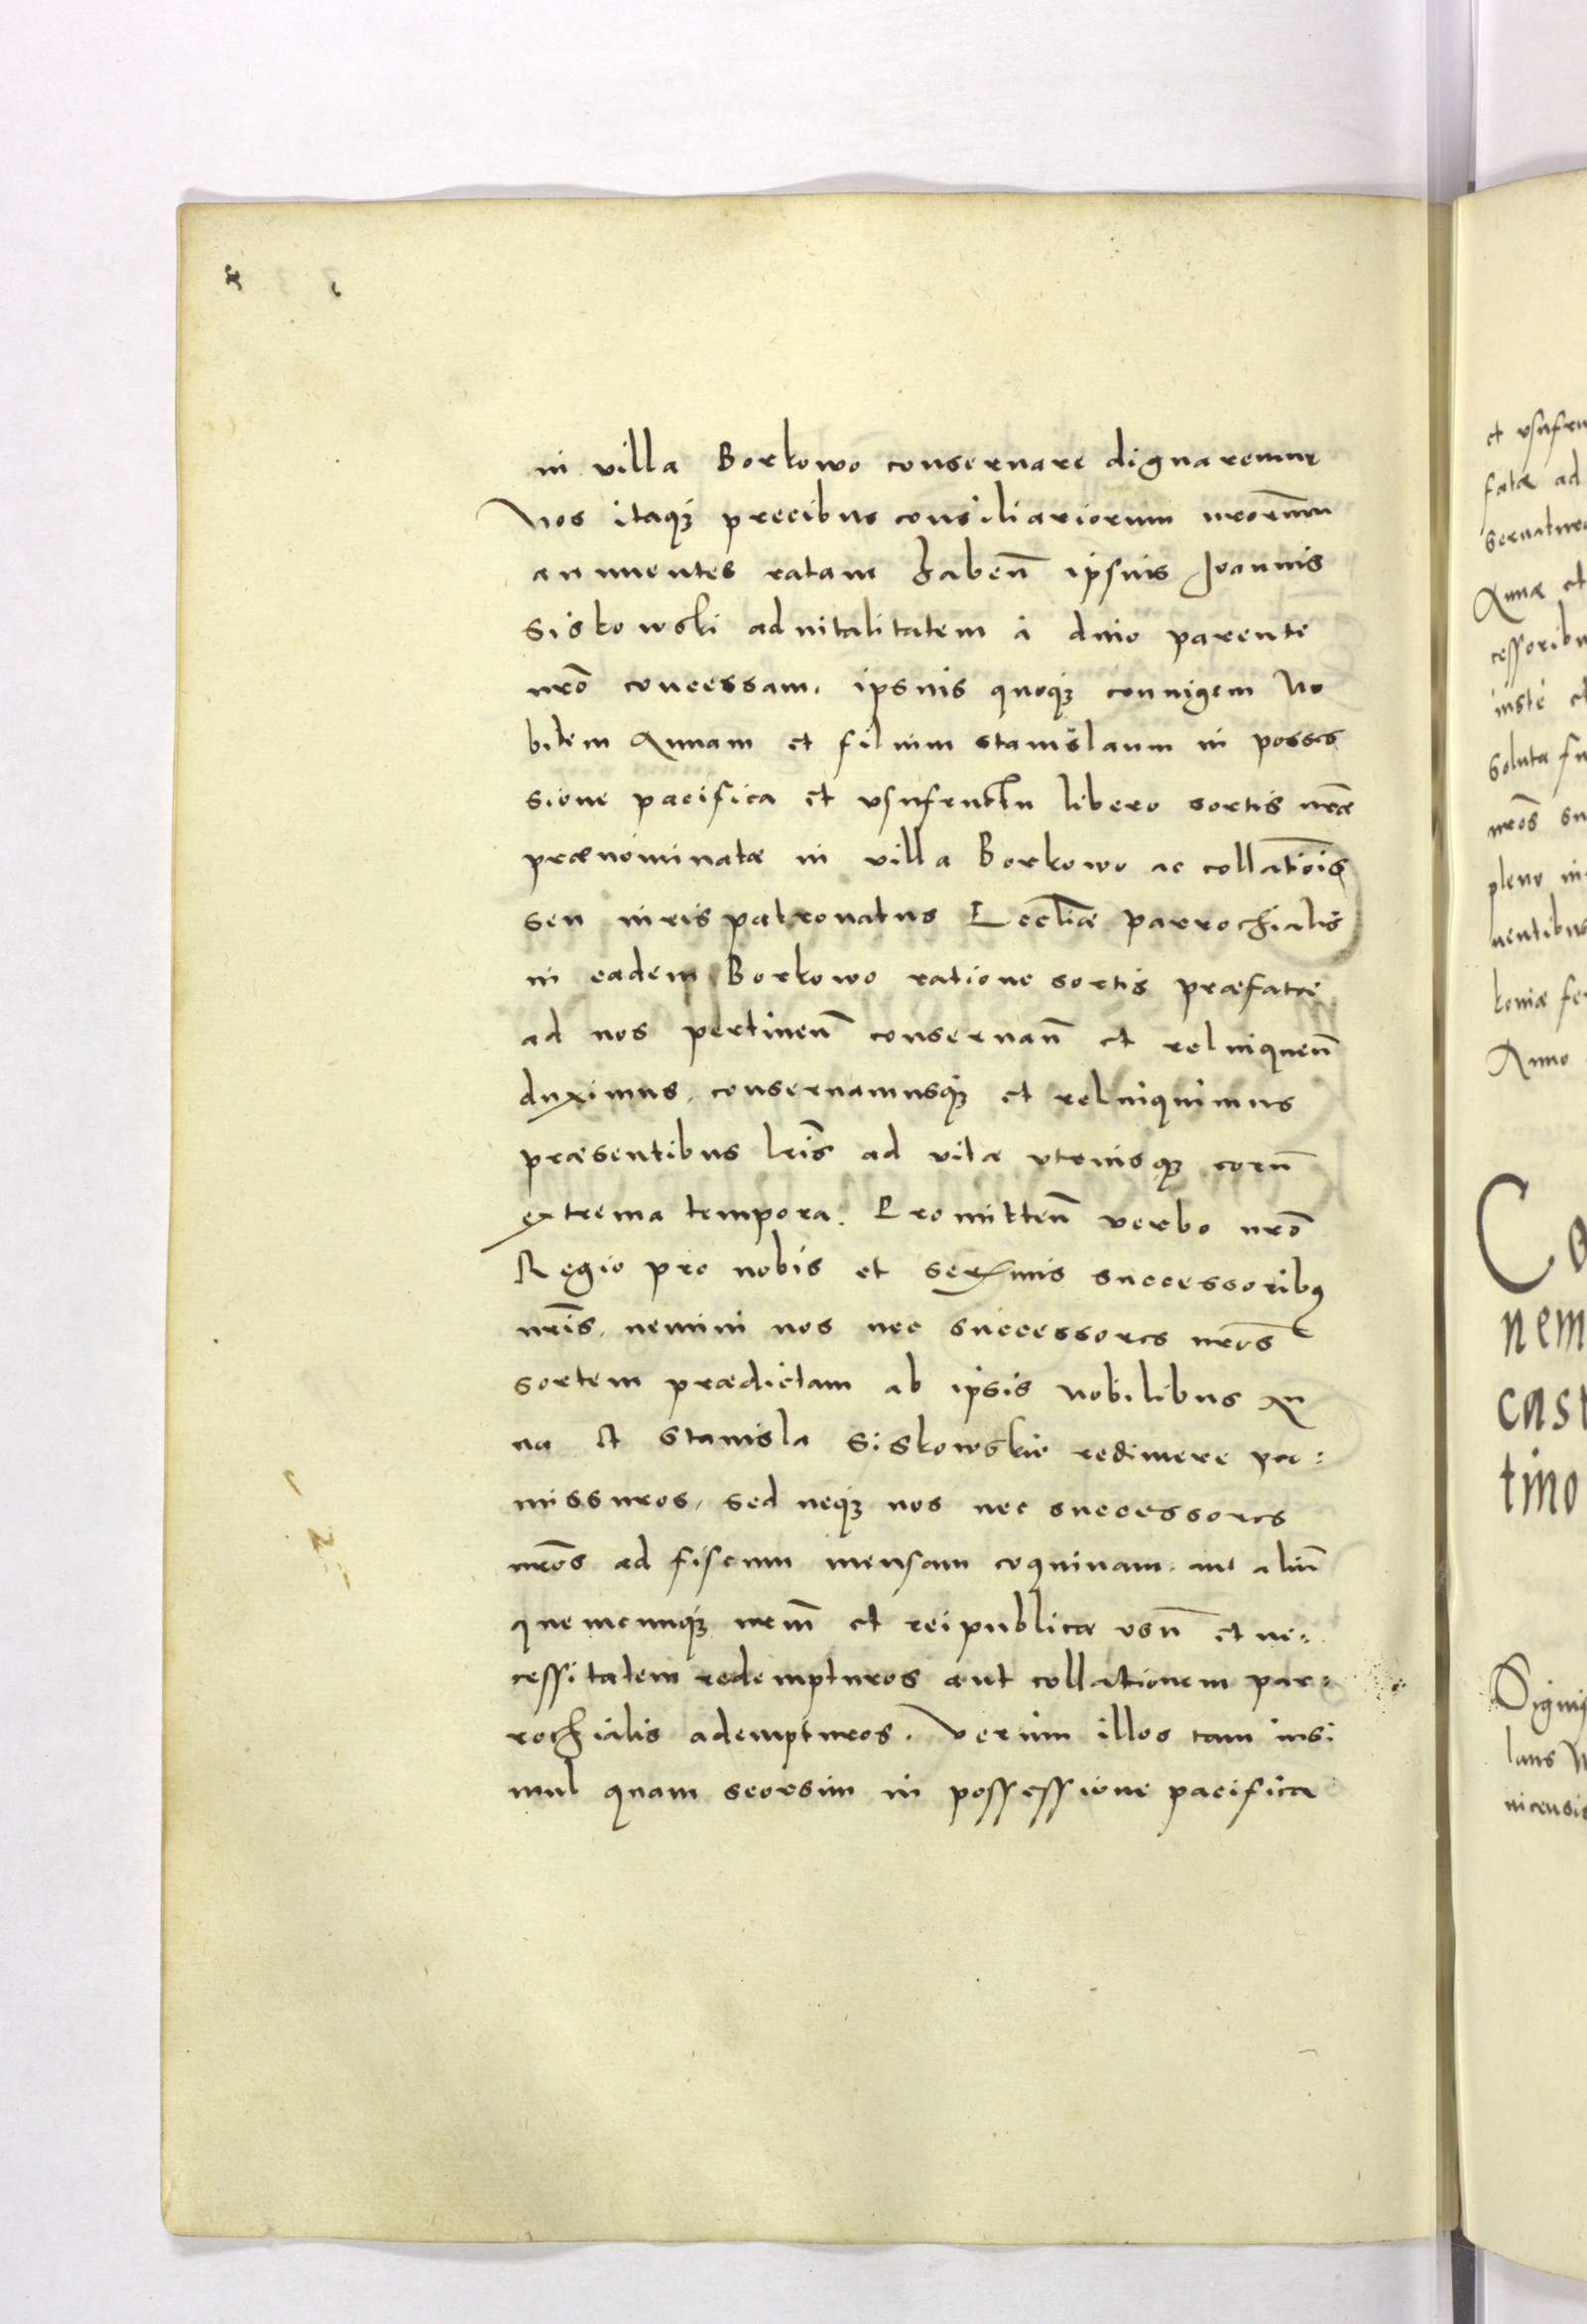 in villa Borkowo conseruare dignaremur
Nos itaqꝫ precibus consiliariorum nrōrum
annuentes ratam habeñ ipsius Joannis
Siskowski aduitalitatem à diuo parente
nrō concessam. ipsius quoqꝫ coniugem No
bilem Annam et filium Stanislaum in posses
sione pacifica et vsufructu libero sortis nrǣ
prænominatæ in villa Borkowo ac collatiōis
seu iuris patronatus Eccliǣ parrochialis
in eadem Borkowo ratione sortis præfatæ
ad nos pertineñ conseruañ et relinqueñ
duximus. conseruamusqꝫ et relinquimus
præsentibus lrīs ad vitæ vtriusqꝫ eorū
extrema tempora. Promitteñ verbo nrō
Regio pro nobis et serᵐⁱˢ successoribꝰ
nrīs. nemini nos nec successores nrōs
sortem prædictam ab ipsis Nobilibus An
na et Stanisla Siskowskie redimere per=
missuros. sed neqꝫ nos nec successores
nrōs ad fiscum mensam coquinam. aut aliū
quemcunqꝫ nrūm et reipublicæ vsū et ne=
cessitatem redempturos aut collationem par=
rochialis adempturos. Verùm illos tam insi
mul quam seorsim in possessione pacifica
et vsufru
fatæ ad
seruaturo
Annæ et
cessoribu
iuste et
soluta fu
nrōs su
pleno iu
uentibus
koniæ fe
Anno
Co
nem
cast
tino
Signi
laus
nicensis